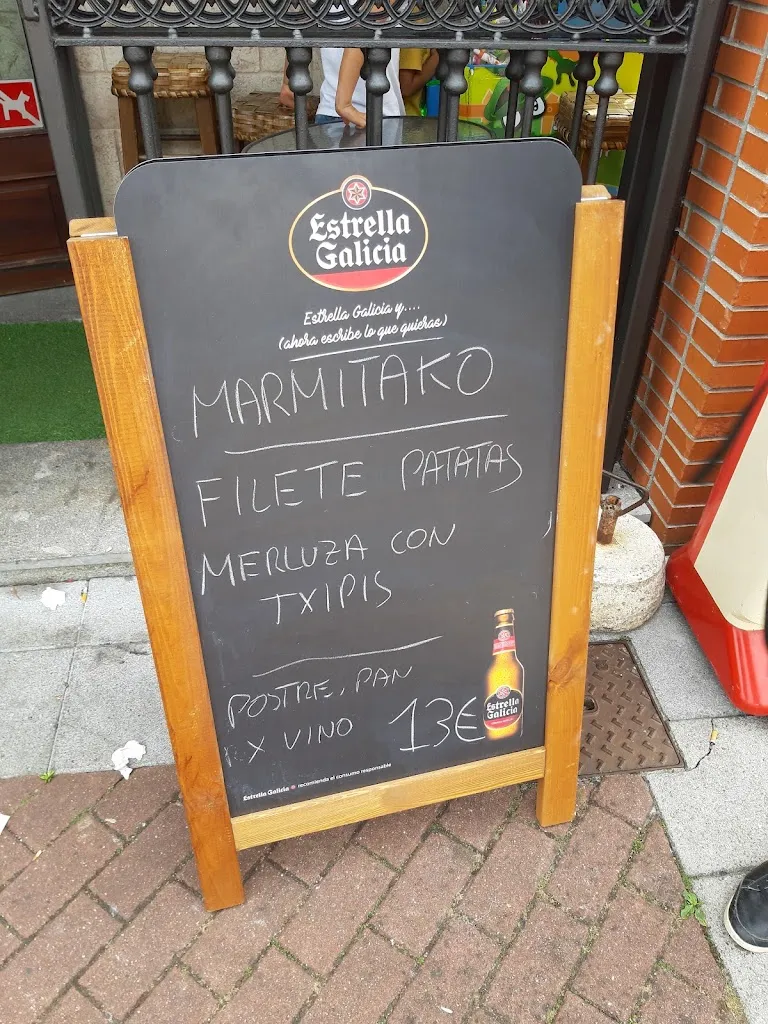 Estrella
Galicia
Estrella Galicia y....
(ahora escribe lo que quieras)
MARMITAKO
FILETE PATATAS
MERLUZA CON
TXIPIS
POSTRE, PAN
X VINO 13€
Estrella
Galicia
Estrella Galicia recomienda el consumo responsable